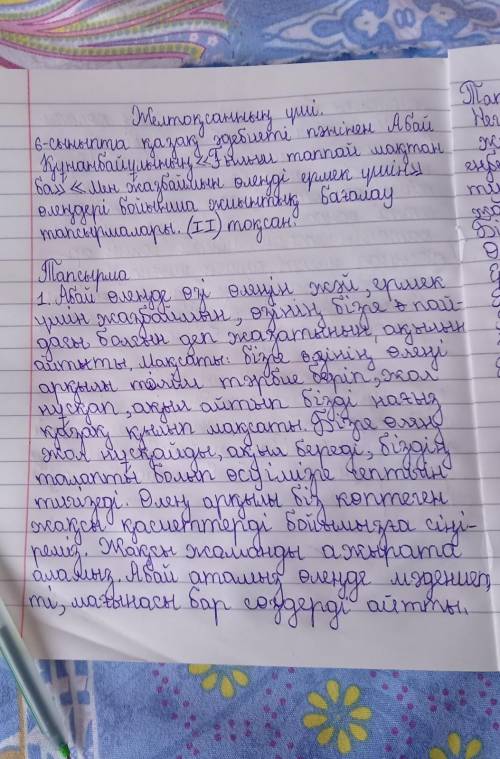 Желтоқсанның үші.
6-сыныпта қазақ әдебиеті пәнінен Абай
Құнанбайұлының «Ғылым таппай мақтан
ба» «Мен жазбаймын өлеңді ермек үшін»
өлеңдері бойынша жиынтық бағалау
тапсырмалары. (II) тоқсан.
Тапсырма
1. Абай өлеңде өзі өлеңін жәй, ермек
үшін жазбаймын, өзінің бізге пай-
дасы болсын деп жазатынын, ақынын
айтыты. Мақсаты: бізге өзінің өлеңі
арқылы тәлім тәрбие беріп, жол
нұсқап, ақыл айтып бізді нағыз
қазақ қылып мақсаты. Бізге өлең
жол нұсқайды, ақыл береді, біздің
талапты болып өсуімізге септігін
тигізеді. Өлең арқылы біз көптеген
жақсы қасиеттерді бойымызға сіңі-
реміз. Жақсы жаманды ажырата
аламыз. Абай атамыз өлеңде мәдениет,
ті, мағынасы бар сөздерді айтты.
Тап